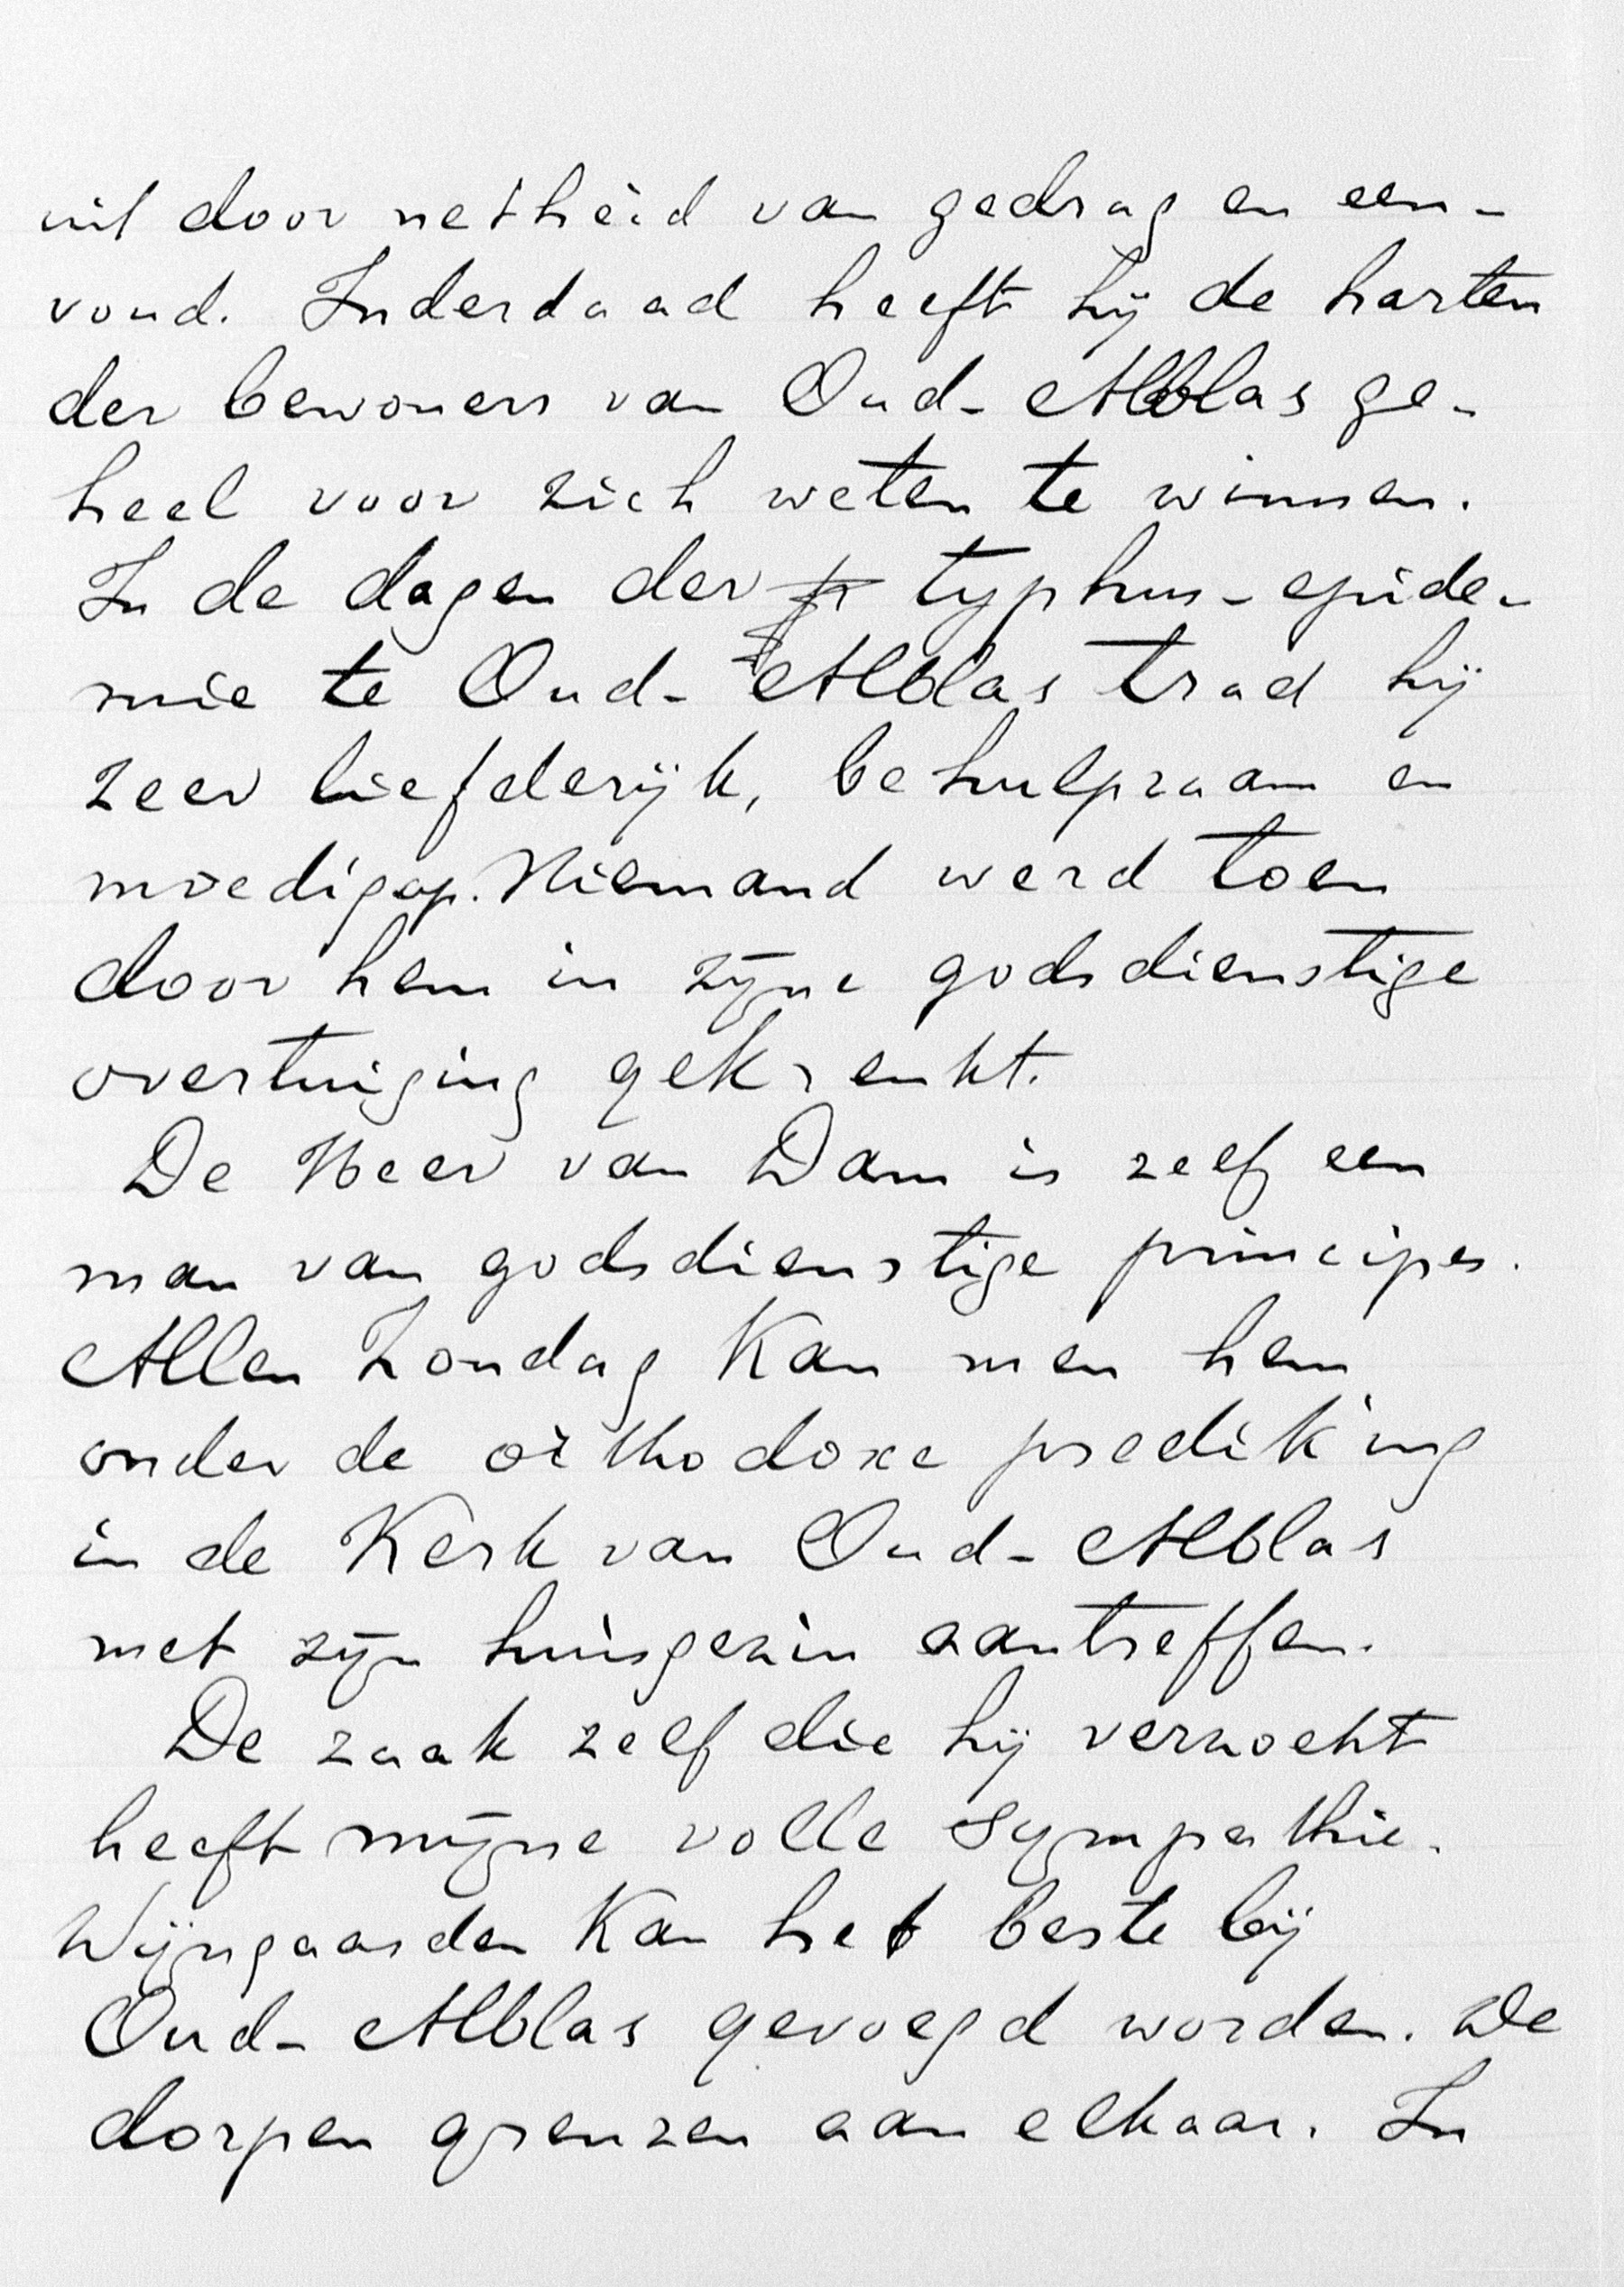 uit door netheid van gedrag en een-
voud. Inderdaad heeft hij de harten
der bewoners van Oud-Alblas ge-
heel voor zich weten te winnen.
In de dagen der typhus-epide-
mie te Oud-Alblas trad hij
zeer liefderijk, behulpzaam en
moedig op. Niemand werd toen
door hem in zijne godsdienstige
overtuiging gekrenkt.
De Heer van Dam is zelf een
man van godsdienstige principes.
Allen Zondag kan men hem
onder de orthodoxe prediking
in de Kerk van Oud-Alblas
met zijn huisgezin aantreffen.
De zaak zelf die hij verzoekt
heeft mijne volle sympathie.
Wijngaarden kan het beste bij
Oud-Alblas gevoegd worden. De
dorpen grenzen aan elkaar. In